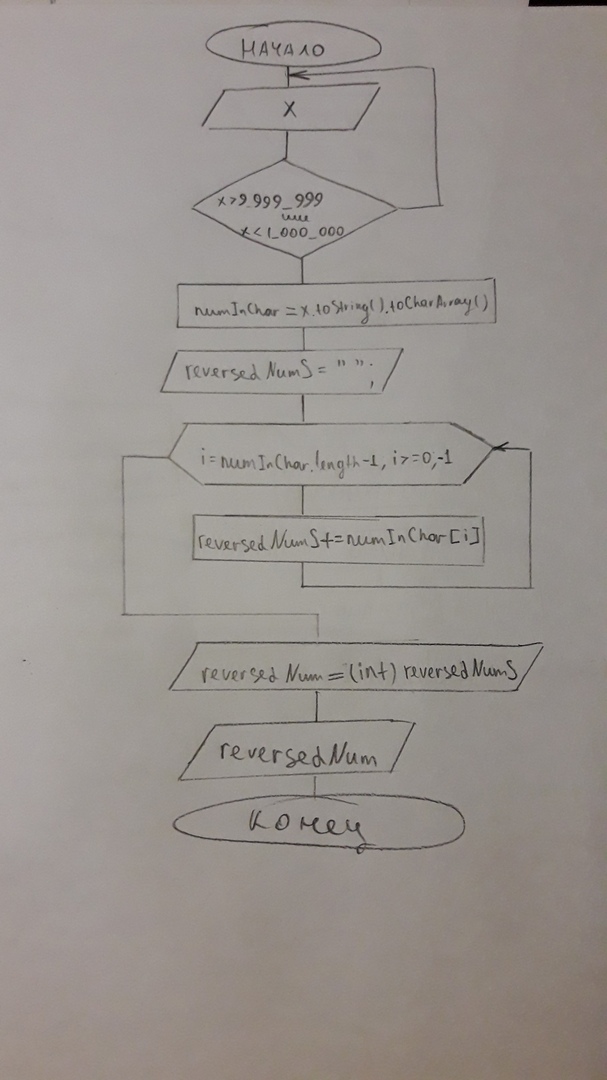 НАЧАЛО
X
x>9_999_999
или
x<1_000_000
numInChar = x.toString().toCharArray()
reversedNumS = " ";
i=numInChar.length-1, i>=0,-1
reversedNumS+=numInChar[i]
reversedNum=(int) reversedNumS
reversedNum
конец